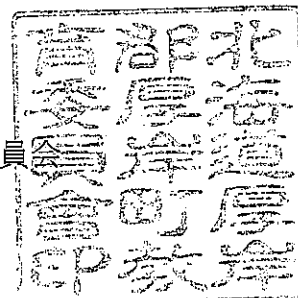 北海道厚岸
郡厚岸町教
育委員會印
員会